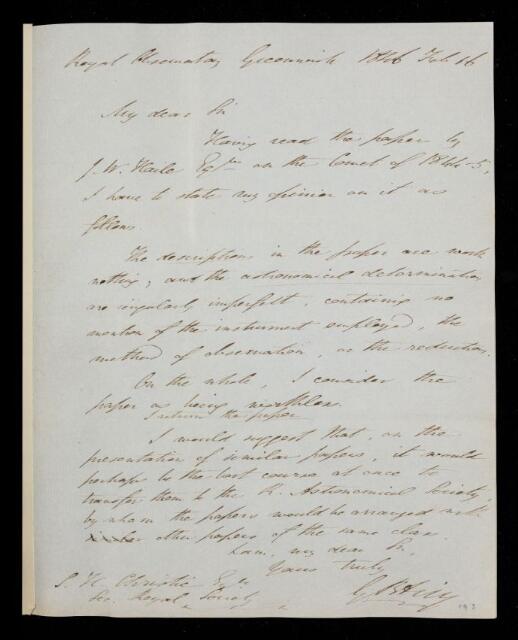 Royal Observatory Greenwich 1846 Feb 16
My dear Sir
Having read the paper by
J. W. Haile Esqre on the Comet of 1844-5,
I have to state my opinion on it as
follows.
The descriptions in the paper are worth
nothing; and the astronomical determinations
are singularly imperfect, containing no
mention of the instrument employed, the
method of observation, or the reductions.
On the whole, I consider the
paper as being worthless.
I return the paper
I would suggest that, on the
presentation of similar papers, it would
perhaps be the best course at once to
transfer them to the R. Astronomical Society,
by whom the papers would be arranged with
other papers of the same class.
I am, my dear Sir,
Yours truly
G B Airy
S. H. Christie Esqre
Sec. Royal Society
193